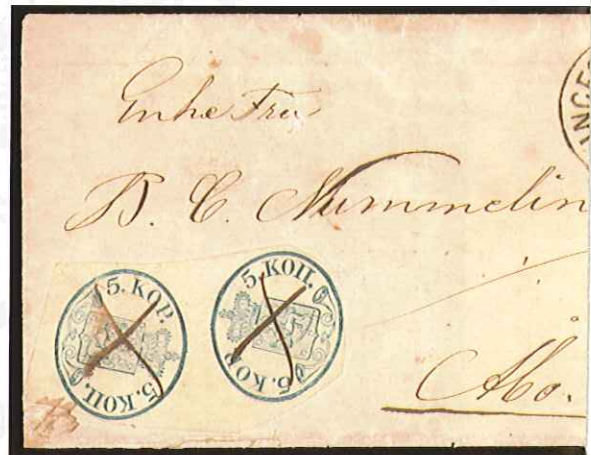 Enke Fru
B. C. Nummelin
Åbo.
5. KOP. 5. КОП.
5. КОП. 5. KOP
ANCE